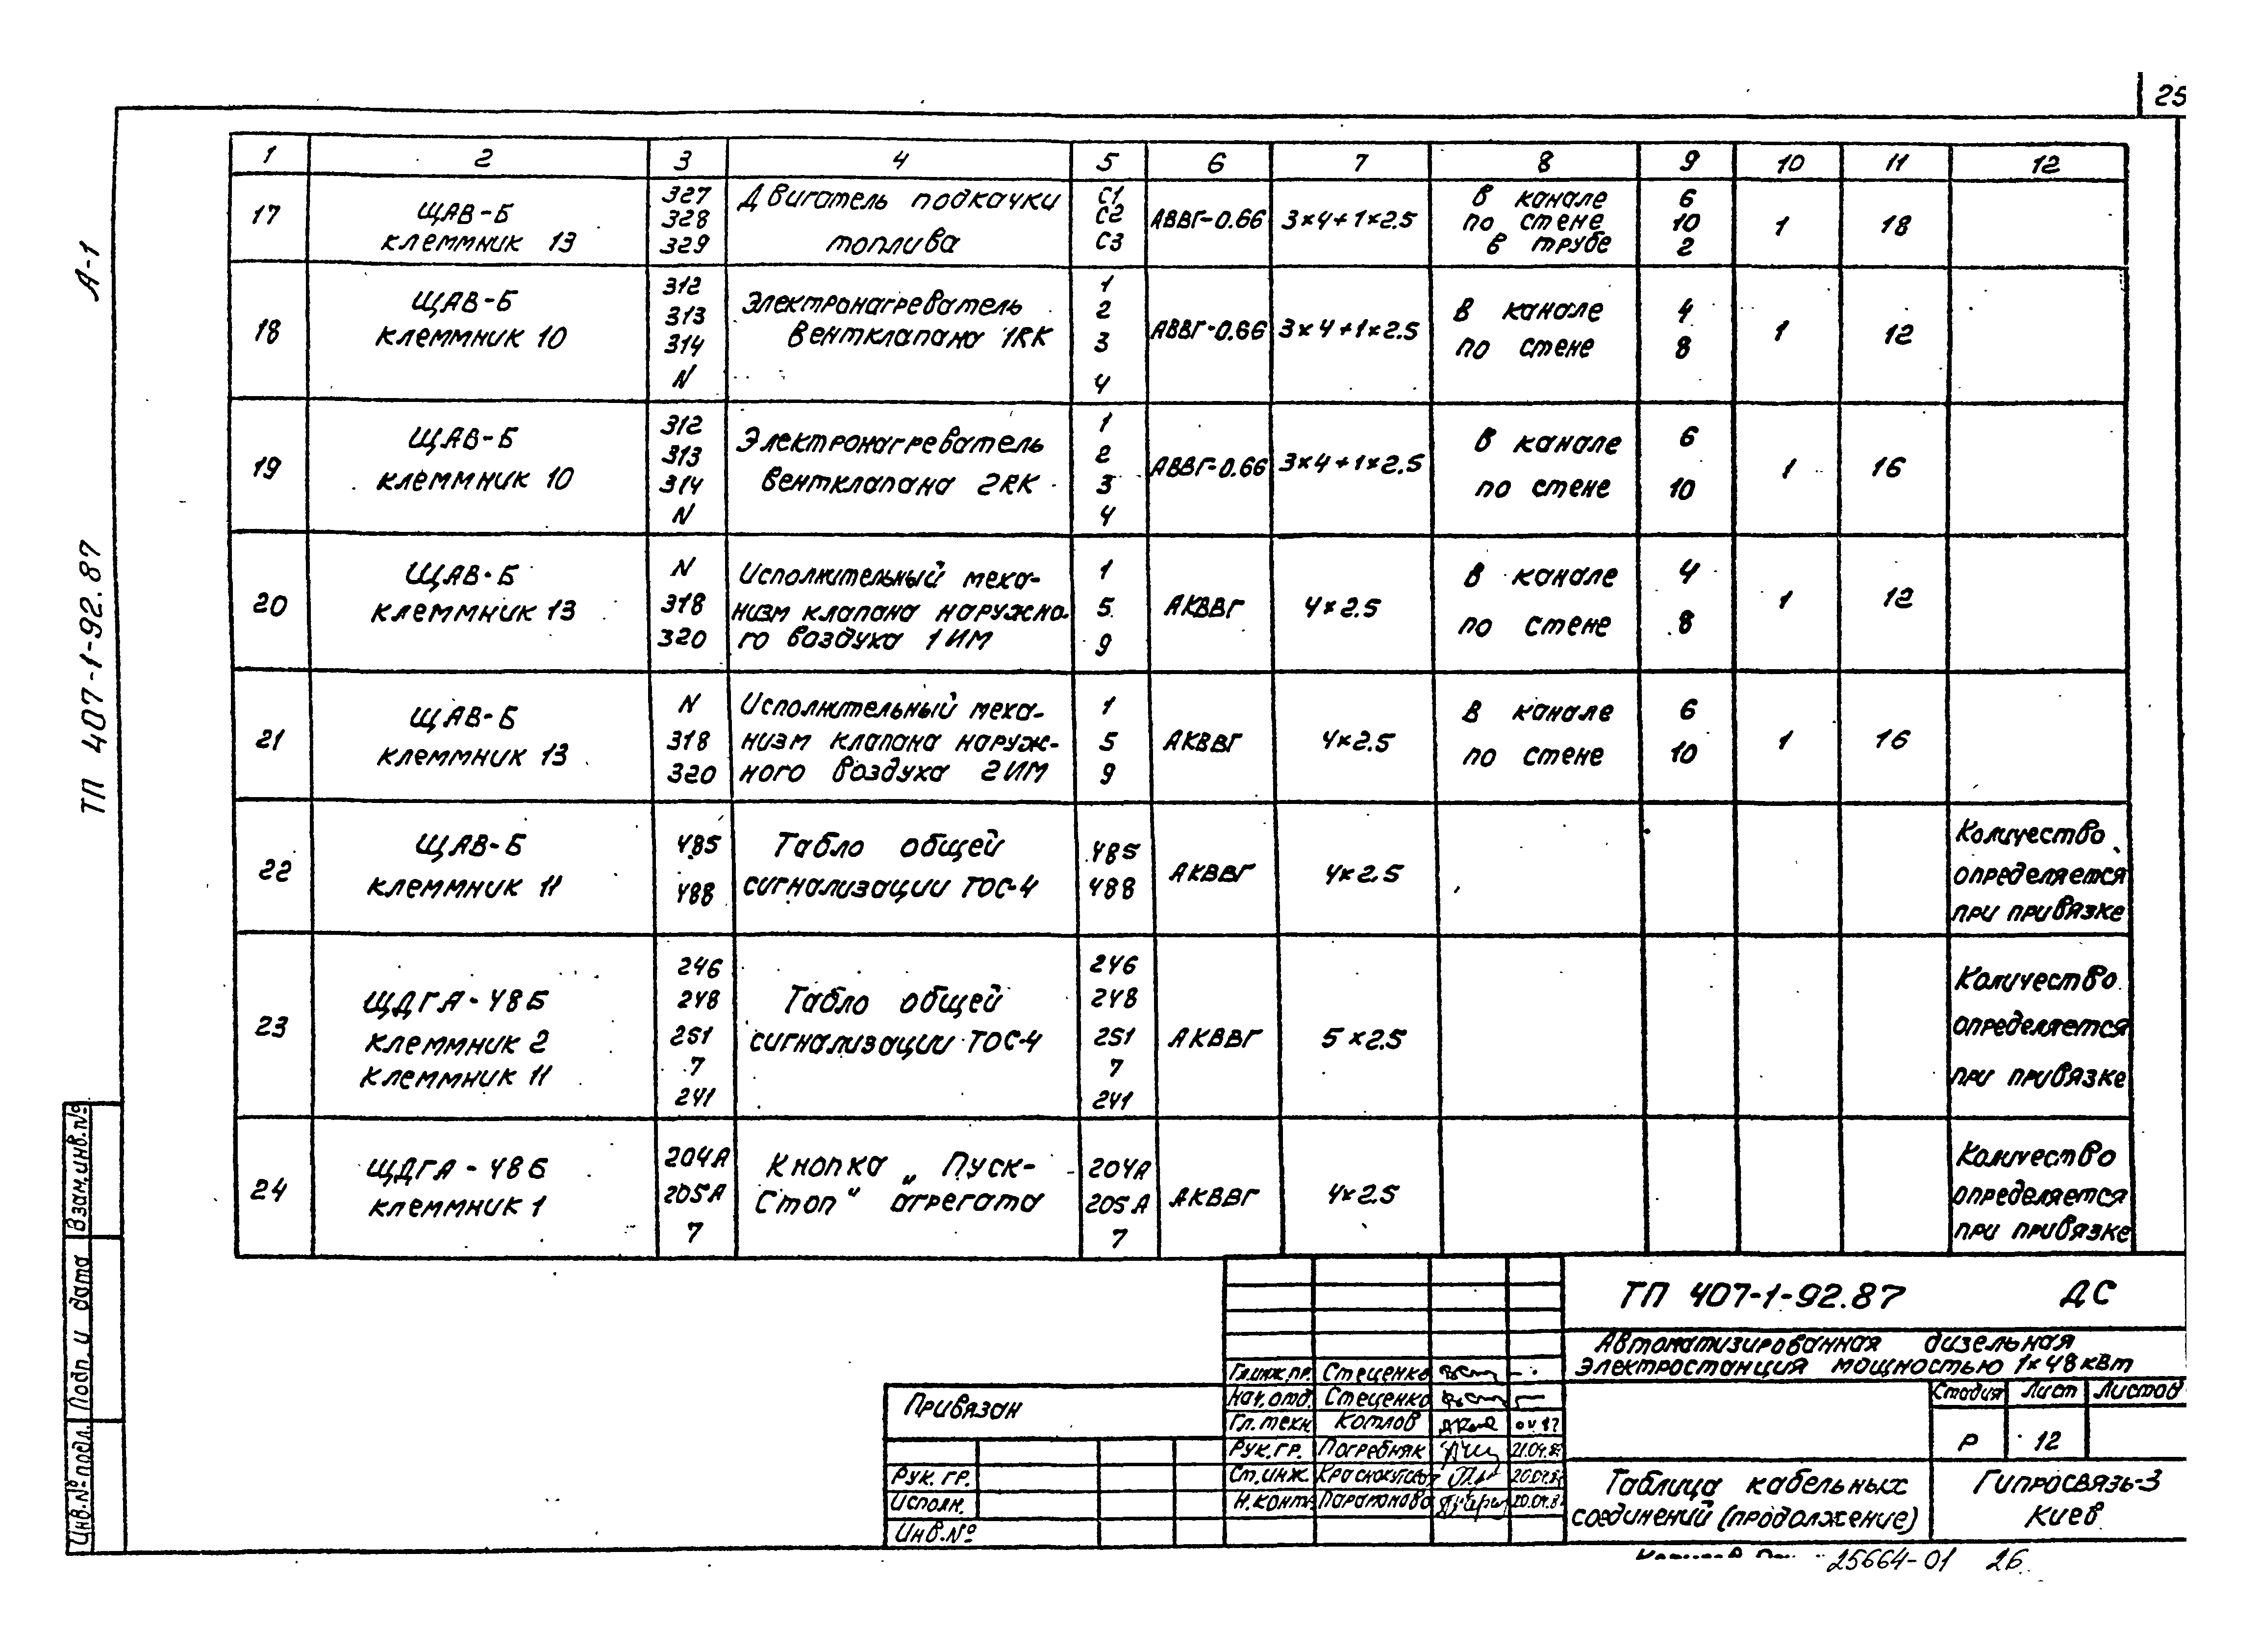 25
А-1
ТП 407-1-92.87
1 2 3 4 5 6 7 8 9 10 11 12
17 ЩАВ-Б клеммник 13
327 328 329
Двигатель подкачки
топлива
С1 С2 С3
АВВГ-0.66 3×4+1×2.5
в канале 6
по стене 10
в трубе 2
1 18
18 ЩАВ-Б
клеммник 10
312 313 314 N
Электронагреватель
вентклапана 1RK
1 2 3 4
АВВГ-0.66 3×4+1×2.5
в канале 4
по стене 8
1 12
19 ЩАВ-Б
клеммник 10
312 313 314 N
Электронагреватель
вентклапана 2RK
1 2 3 4
АВВГ-0.66 3×4+1×2.5
в канале 6
по стене 10
1 16
20 ЩАВ-Б
клеммник 13
N 318 320
Исполнительный меха-
низм клапана наружно-
го воздуха 1ИМ
1 5 9
АКВВГ 4×2.5
в канале 4
по стене 8
1 12
21 ЩАВ-Б
клеммник 13
N 318 320
Исполнительный меха-
низм клапана наруж-
ного воздуха 2ИМ
1 5 9
АКВВГ 4×2.5
в канале 6
по стене 10
1 16
22 ЩАВ-Б
клеммник 11
485 488
Табло общей
сигнализации ТОС-4
485 488
АКВВГ 4×2.5
Количество
определяется
при привязке
23 ЩДГА-48Б
клеммник 2
клеммник 11
246 248 251 7 241
Табло общей
сигнализации ТОС-4
246 248 251 7 241
АКВВГ 5×2.5
Количество
определяется
при привязке
24 ЩДГА-48Б
клеммник 1
204А 205А 7
Кнопка „Пуск-
Стоп" агрегата
204А 205А 7
АКВВГ 4×2.5
Количество
определяется
при привязке
Взам.инв.№
Подп. и дата
Инв.№ подл.
ТП 407-1-92.87 ДС
Автоматизированная дизельная
электростанция мощностью 1×48 квт
Гл.инж.пр. Стеценко
Нач.отд. Стеценко
Гл.техн. Котлов
Рук.гр. Погребняк
Ст.инж.
Н.контр.
Стадия Лист Листов
Р 12
Таблица кабельных
соединений (продолжение)
Гипросвязь-3
Киев
Привязан
Рук. гр.
Исполн.
Инв.№
25664-01 26